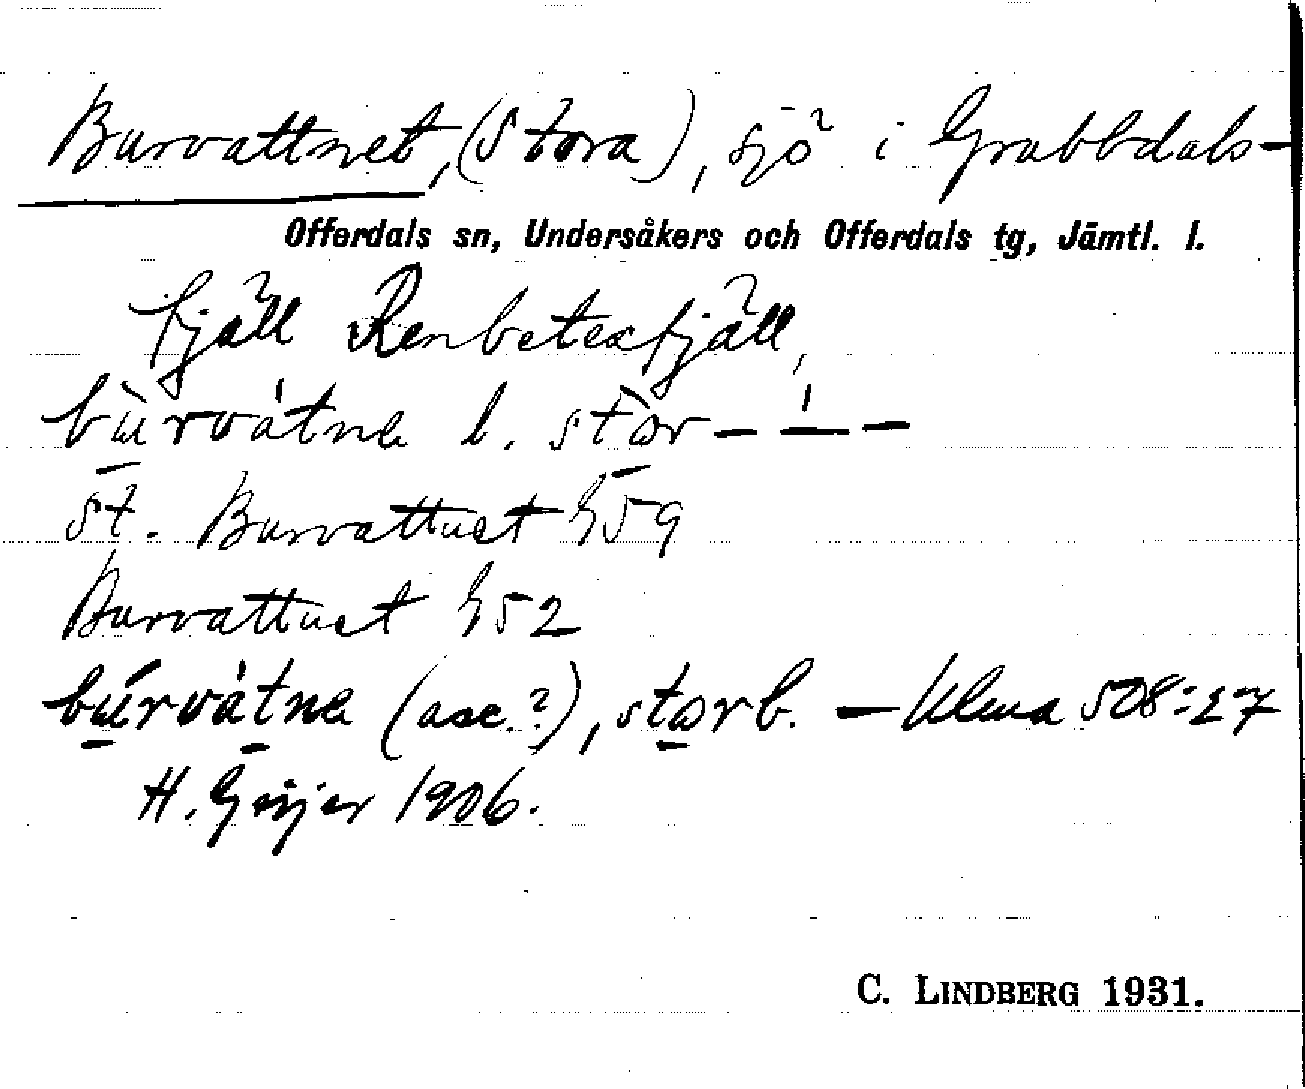 Burvattnet, (Stora), sjö i Grubbdals-
Offerdals sn, Undersåkers och Offerdals tg, Jämtl. l.
fjäll Renbetesfjäll,
bùrvátna l. stòr – –́ –
St. Burvattnet § 59
Burvattnet § 52
búrvàtna (acc.?), storb. – Ulma 508:27
H. Geijer 1906.
C. LINDBERG 1931.